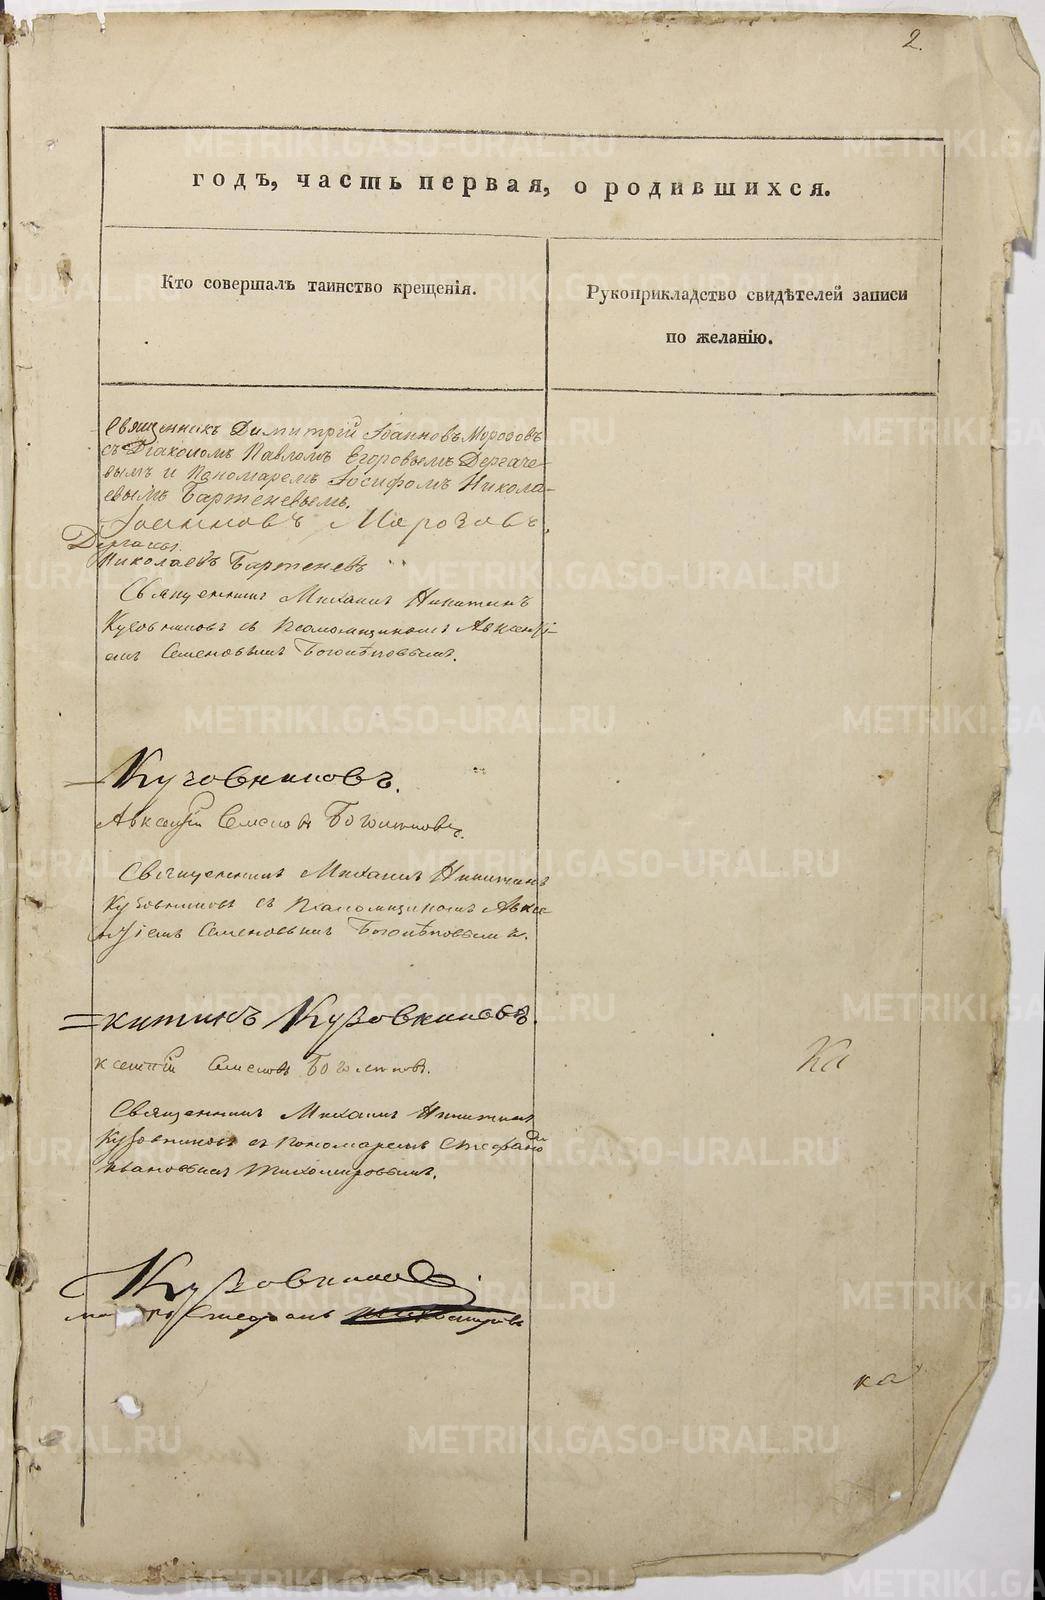 2.
годъ, часть первая, о родившихся.
Кто совершалъ таинство крещенія.
Рукоприкладство свидѣтелей записи
по желанію.
Священникъ Димитрій Іоанновъ Морозовъ
съ Діакономъ Павломъ Егоровымъ Дергаче-
вымъ и Пономаремъ Іосифомъ Никола-
евымъ Бартеневымъ.
Іоанновъ Морозовъ.
Дергачевъ
Николаевъ Бартеневъ
Священникъ Михаилъ Никитинъ
Кузовниковъ съ Псаломщикомъ Авксенті-
емъ Семеновымъ Боголѣповымъ.
Кузовниковъ.
Авксентій Семеновъ Боголѣповъ.
Священникъ Михаилъ Никитинъ
Кузовниковъ съ Псаломщикомъ Авксе
нтіемъ Семеновымъ Боголѣповымъ.
китинъ Кузовниковъ.
ксентій Семеновъ Боголѣповъ.
Ка
Священникъ Михаилъ Никитинъ
Кузовниковъ съ Пономаремъ Стефаномъ
Ивановымъ Тихомировымъ.
Кузовниковъ
Стефанъ Тихомировъ
ка
METRIKI.GASO-URAL.RU